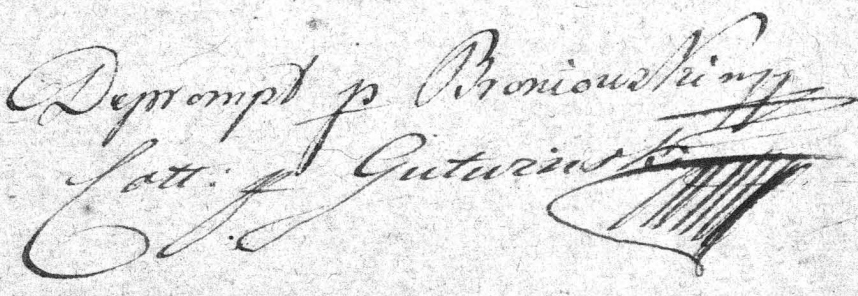 Deprompt p Broniowskimpp
Coll: p Guturinski